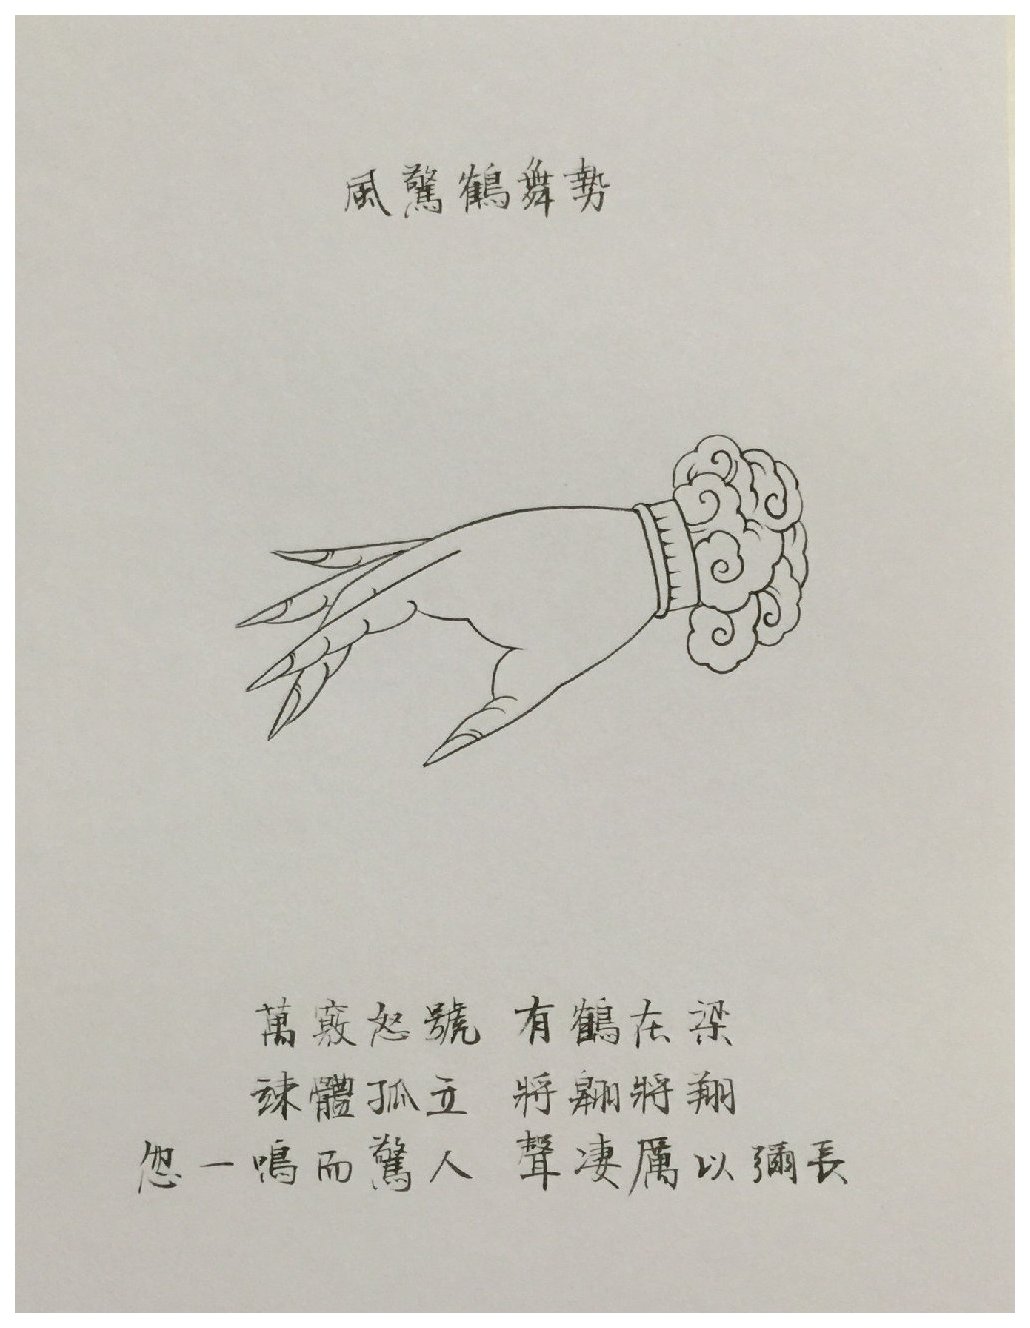 風驚鶴舞勢
萬竅怒號 有鶴在梁
竦體孤立 將翺將翔
忽一鳴而驚人 聲凄厲以彌長